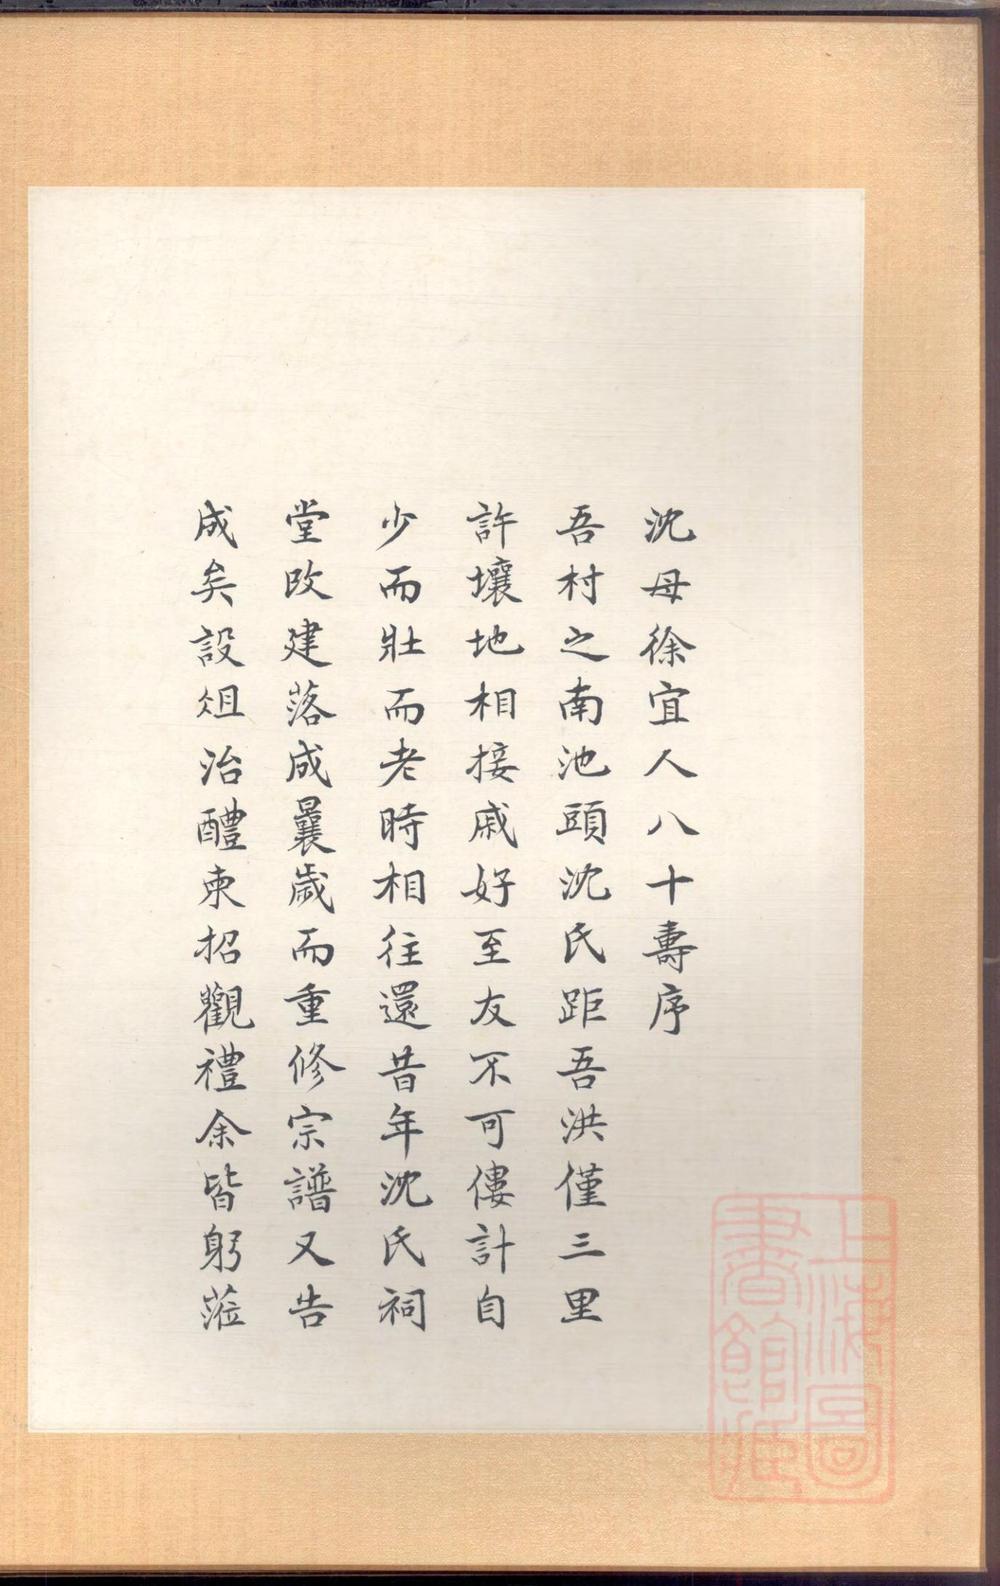 沈母徐宜人八十壽序
吾村之南池頭沈氏距吾洪僅三里
許壤地相接戚好至友不可僂計自
少而壯而老時相往還昔年沈氏祠
堂改建落成曩歲而重修宗譜又告
成矣設俎治醴柬招觀禮余皆躬蒞
上海圖
書館藏